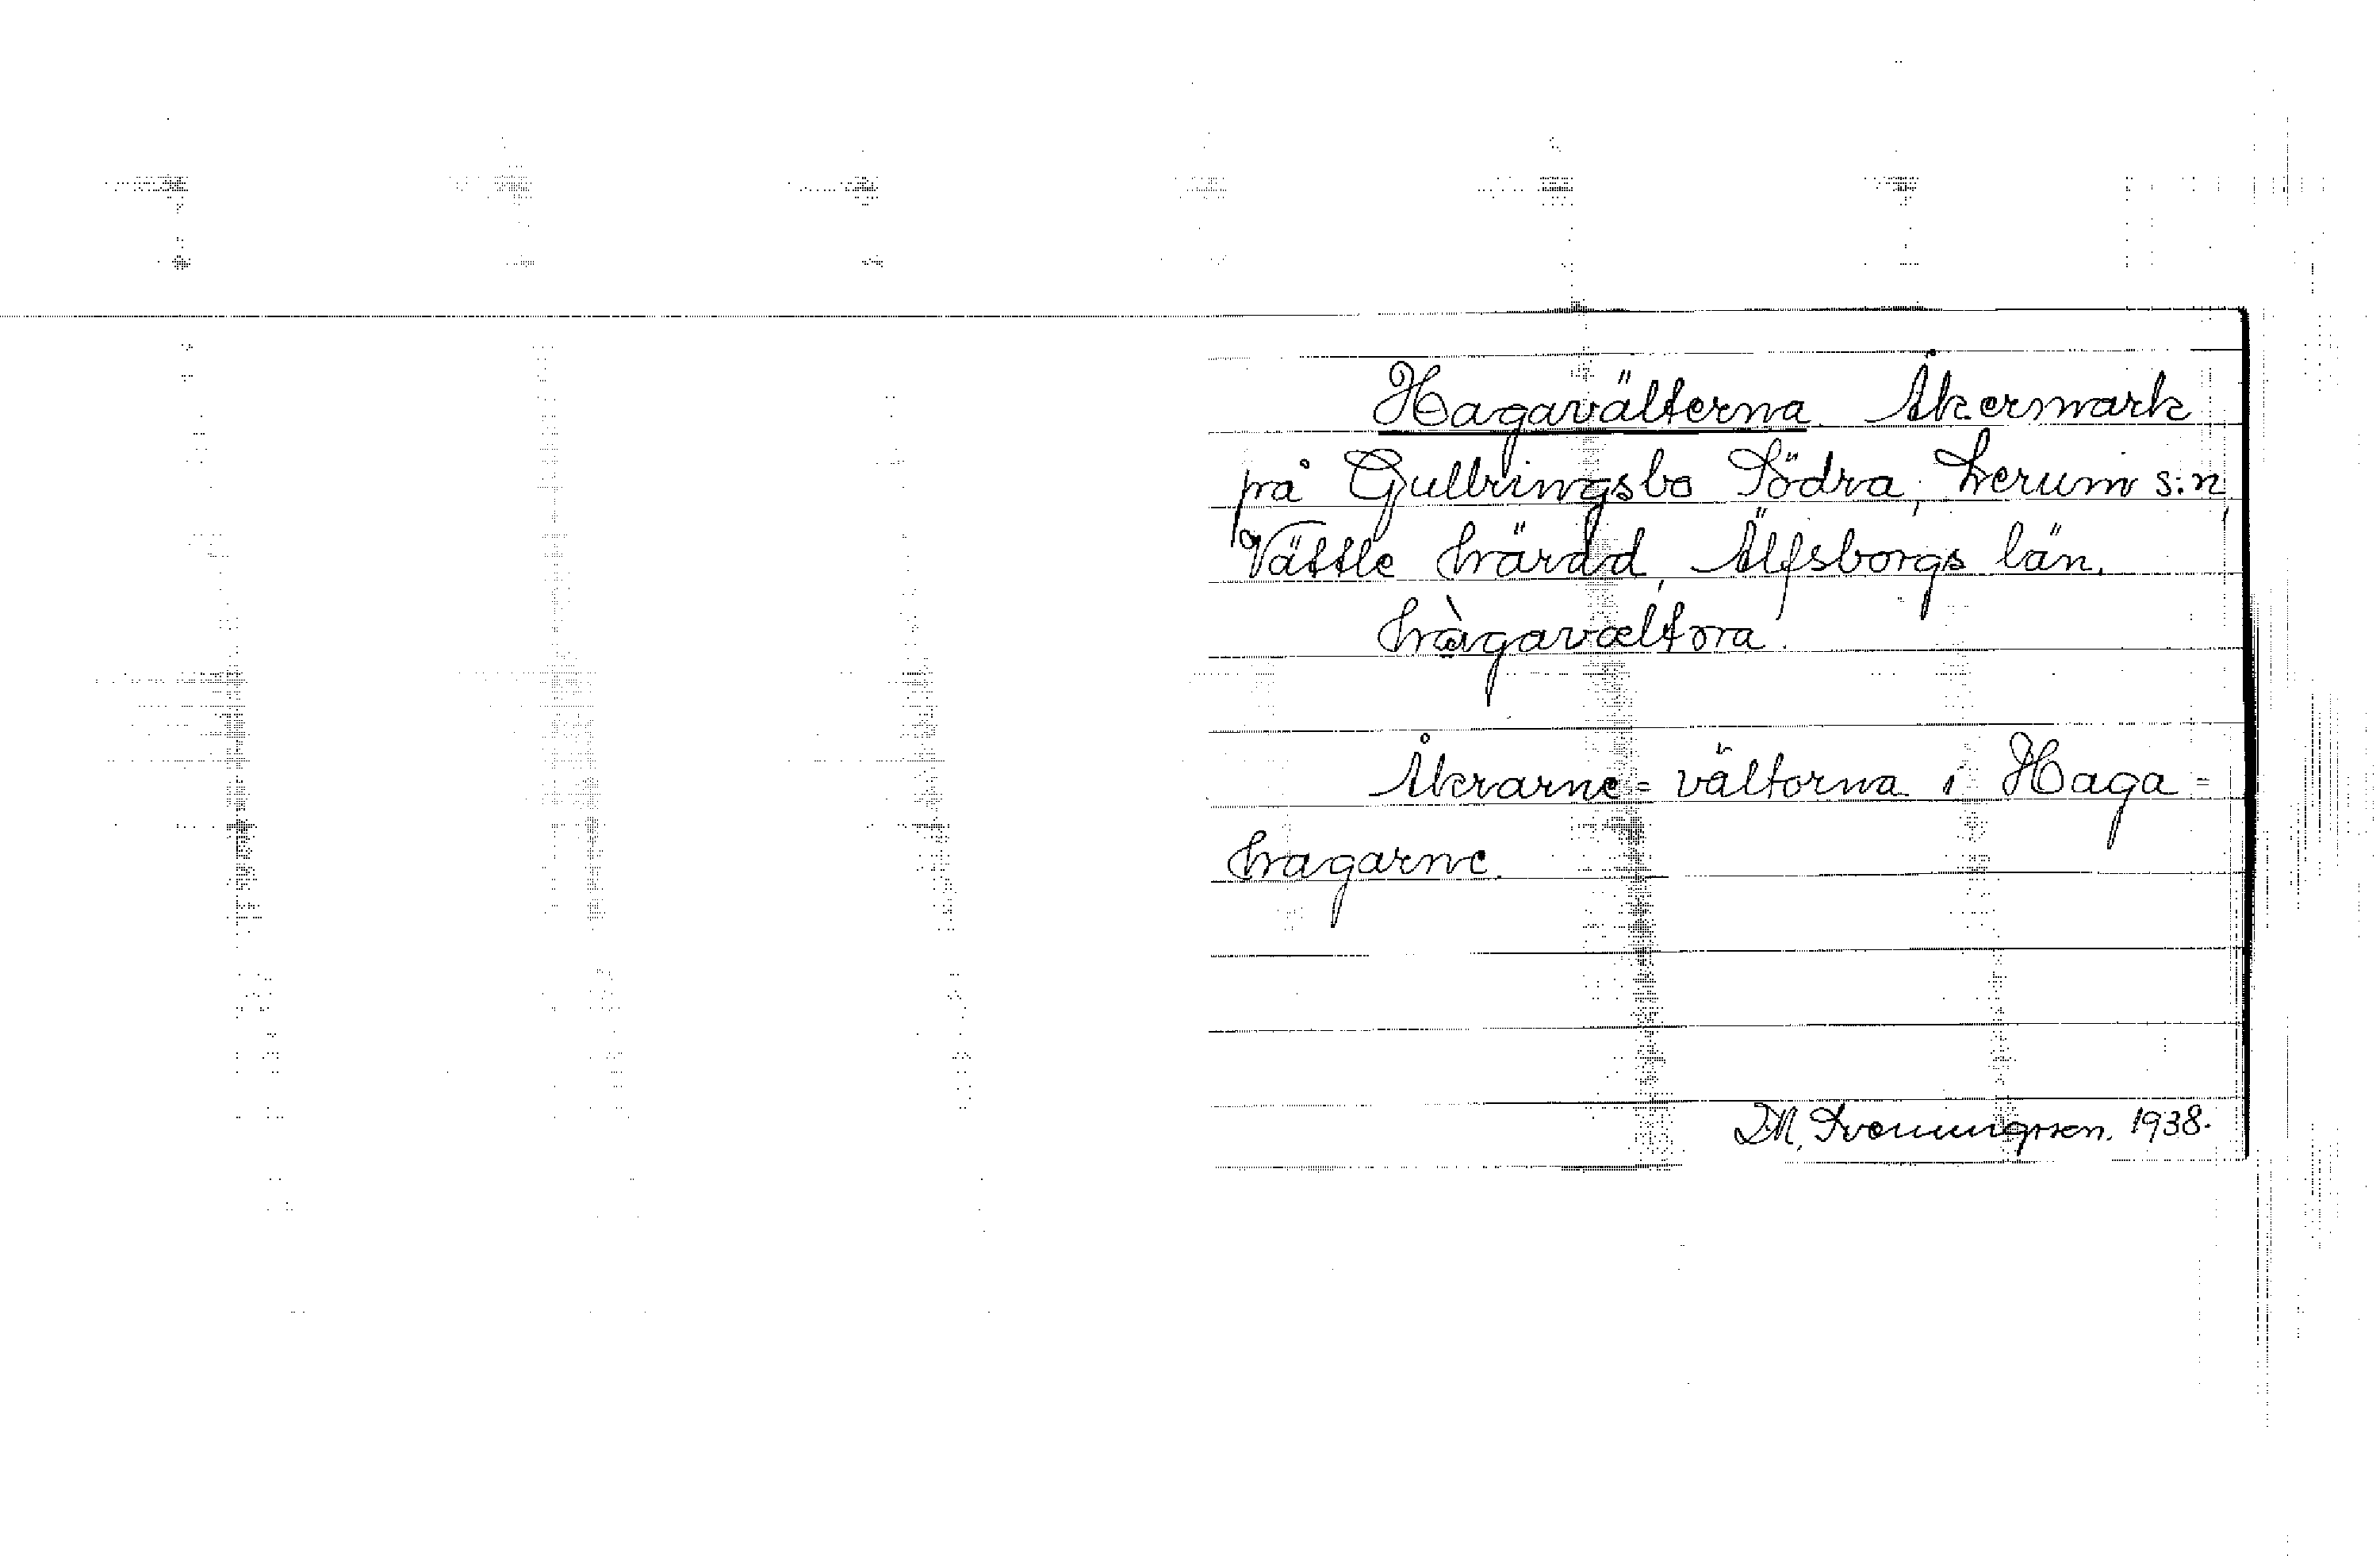 Hagavälterna. Åkermark
på Gullringsbo Södra, Lerum s:n,
Vättle härad, Älfsborgs län.
hàgavæltora.
Åkrarne = vältorna i Haga=
hagarne.
D.M. Svenningsson. 1938.